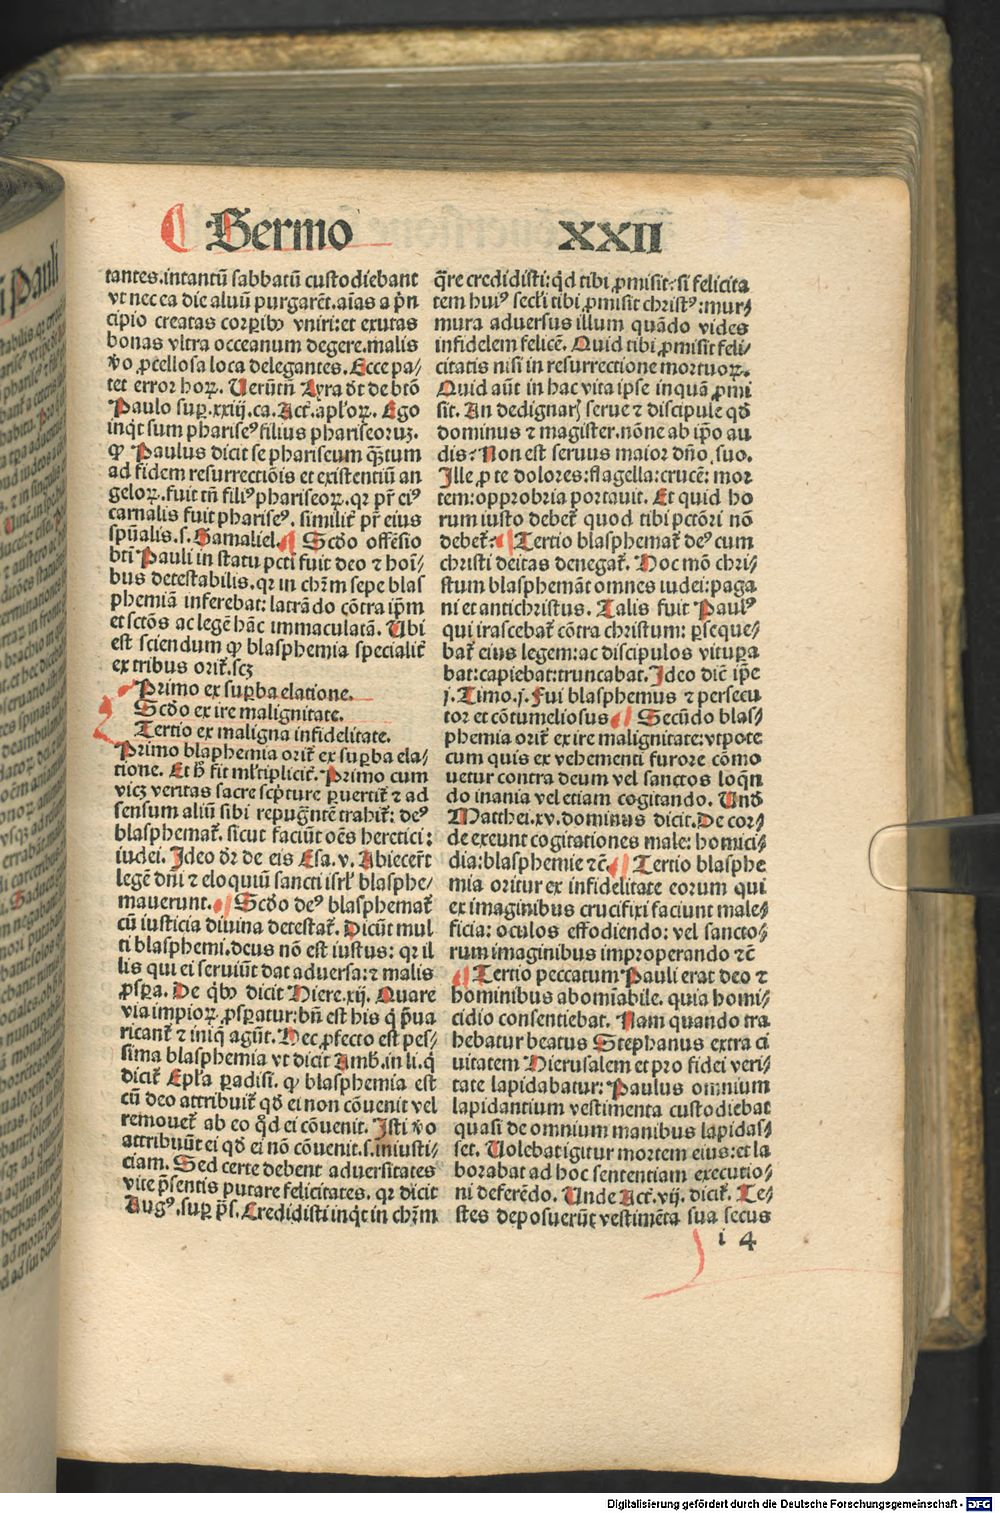 Sermo XXII
tantes.intantū sabbatū custodiebant
vt nec ea die aluū purgarēt.aīas a p̄n
cipio creatas corꝑibꝰ vniri:et exutas
bonas vltra occeanum degere.malis
ꝟo ꝓcellosa loca delegantes. Ecce pa-
tet error hoꝝ. Uerūtn̄ Lyra dt̄ de btō
Paulo suꝑ.xxiij.ca. Act̄.apl̓oꝝ. Ego
inqt̄ sum phariseꝰ filius phariseoruꝫ.
ꝙ Paulus dicit se phariseum qͣꝫtum
ad fidem resurrectiōis et existentiū an
geloꝝ.fuit tn̄ filiꝰ phariseoꝝ.qꝛ pr̄ eiꝰ
carnalis fuit phariseꝰ. similit̓ pr̄ eius
spūalis.s. Gamaliel. ¶ Scd̓o offēsio
btī Pauli in statu pctī fuit deo ⁊ hoī-
bus detestabilis.qꝛ in chꝛ̄m sepe blas
phemiā inferebat: latrādo cōtra ip̄m
et sctōs ac legē hāc immaculatā. Ubi
est sciendum ꝙ blasphemia specialit̓
ex tribus orit̓.scꝫ
Primo ex suꝑba elatione.
Scd̓o ex ire malignitate.
Tertio ex maligna infidelitate.
Primo blaphemia orit̓ ex suꝑba ela-
tione. Et h̓ fit ml̓tiplicit̓. Primo cum
vicꝫ veritas sacre scp̄ture ꝑuertit̓ ⁊ ad
sensum aliū sibi repugn̄tē trahit̓: deꝰ
blasphemat̓. sicut faciūt oēs heretici:
iudei. Ideo dꝛ̄ de eis Esa. v. Abiecer̄t
legē dn̄i ⁊ eloquiū sancti isrl̓ blasphe-
mauerunt. ¶ Scd̓o deꝰ blasphemat̓
cū iusticia diuina detestat̓. Dicūt mul
ti blasphemi.deus nō est iustus: qꝛ il
lis qui ei seruiūt dat aduersa:⁊ malis
ꝓsꝑa. De qͥbꝰ dicit Hiere.xij. Quare
via impioꝝ ꝓsꝑatur:bn̄ est his qͥ p̄ua
ricant̓ ⁊ iniqͥ agūt. Hec ꝓfecto est pes-
sima blasphemia vt dicit Amb̓.in li.qͥ
dicit̓ Epl̓a ꝑadisi. ꝙ blasphemia est
cū deo attribuit̓ qd̓ ei non cōuenit vel
remouet̓ ab eo qd̓ ei cōuenit. Isti ꝟo
attribuūt ei qd̓ ei nō cōuenit.s.iniusti-
ciam. Sed certe debent aduersitates
vite p̄sentis putare felicitates. qꝛ dicit
Augꝰ.suꝑ ps̄. Credidisti inqt̄ in chꝛ̄m
q̄re credidisti:qd̓ tibi ꝓmisit:si felicita
tem huiꝰ secl̓i tibi ꝓmisit christꝰ:mur-
mura aduersus illum quādo vides
infidelem felicē. Quid tibi ꝓmisit feli-
citatis nisi in resurrectione mortuoꝝ.
Quid aūt in hac vita ipse inquā ꝓmi
sit. An dedignarꝭ serue ⁊ discipule qd̓
dominus ⁊ magister.nōne ab ip̄o au
dis: Non est seruus maior dn̄o suo.
Ille ꝓ te dolores:flagella:crucē: mor
tem:opprobria portauit. Et quid ho
rum iusto debet̓ quod tibi pctōri nō
debet̓: ¶ Tertio blasphemat̓ deꝰ cum
christi deitas denegat̓. Hoc mō chri-
stum blasphemāt omnes iudei:paga
ni et antichristus. Talis fuit Paulꝰ
qui irascebat̓ cōtra christum: ꝑseque-
bat̓ eius legem:ac discipulos vituꝑa
bat:capiebat:truncabat. Ideo diē ip̄e
j. Timo.j. Fui blasphemus ⁊ persecu
tor et cōtumeliosus ¶ Secūdo blas-
phemia orit̓ ex ire malignitate:vtpote
cum quis ex vehementi furore cōmo
uetur contra deum vel sanctos loqn̄
do inania vel etiam cogitando. Und̓
Matthei.xv.dominus dicit. De cor-
de exeunt cogitationes male:homici-
dia:blasphemie ⁊c̄. ¶ Tertio blasphe
mia oritur ex infidelitate eorum qui
ex imaginibus crucifixi faciunt male-
ficia: oculos effodiendo: vel sancto-
rum imaginibus improperando ⁊c̄
¶ Tertio peccatum Pauli erat deo ⁊
hominibus abomīabile. quia homi-
cidio consentiebat. Nam quando tra
hebatur beatus Stephanus extra ci
uitatem Hierusalem et pro fidei veri-
tate lapidabatur: Paulus omnium
lapidantium vestimenta custodiebat
quasi de omnium manibus lapidas-
set. Uolebat igitur mortem eius:et la
borabat ad hoc sententiam executio-
ni deferēdo. Unde Act̄.vij. dicit̓. Te-
stes deposuerūt vestimēta sua secus
i 4
Digitalisierung gefördert durch die Deutsche Forschungsgemeinschaft - DFG